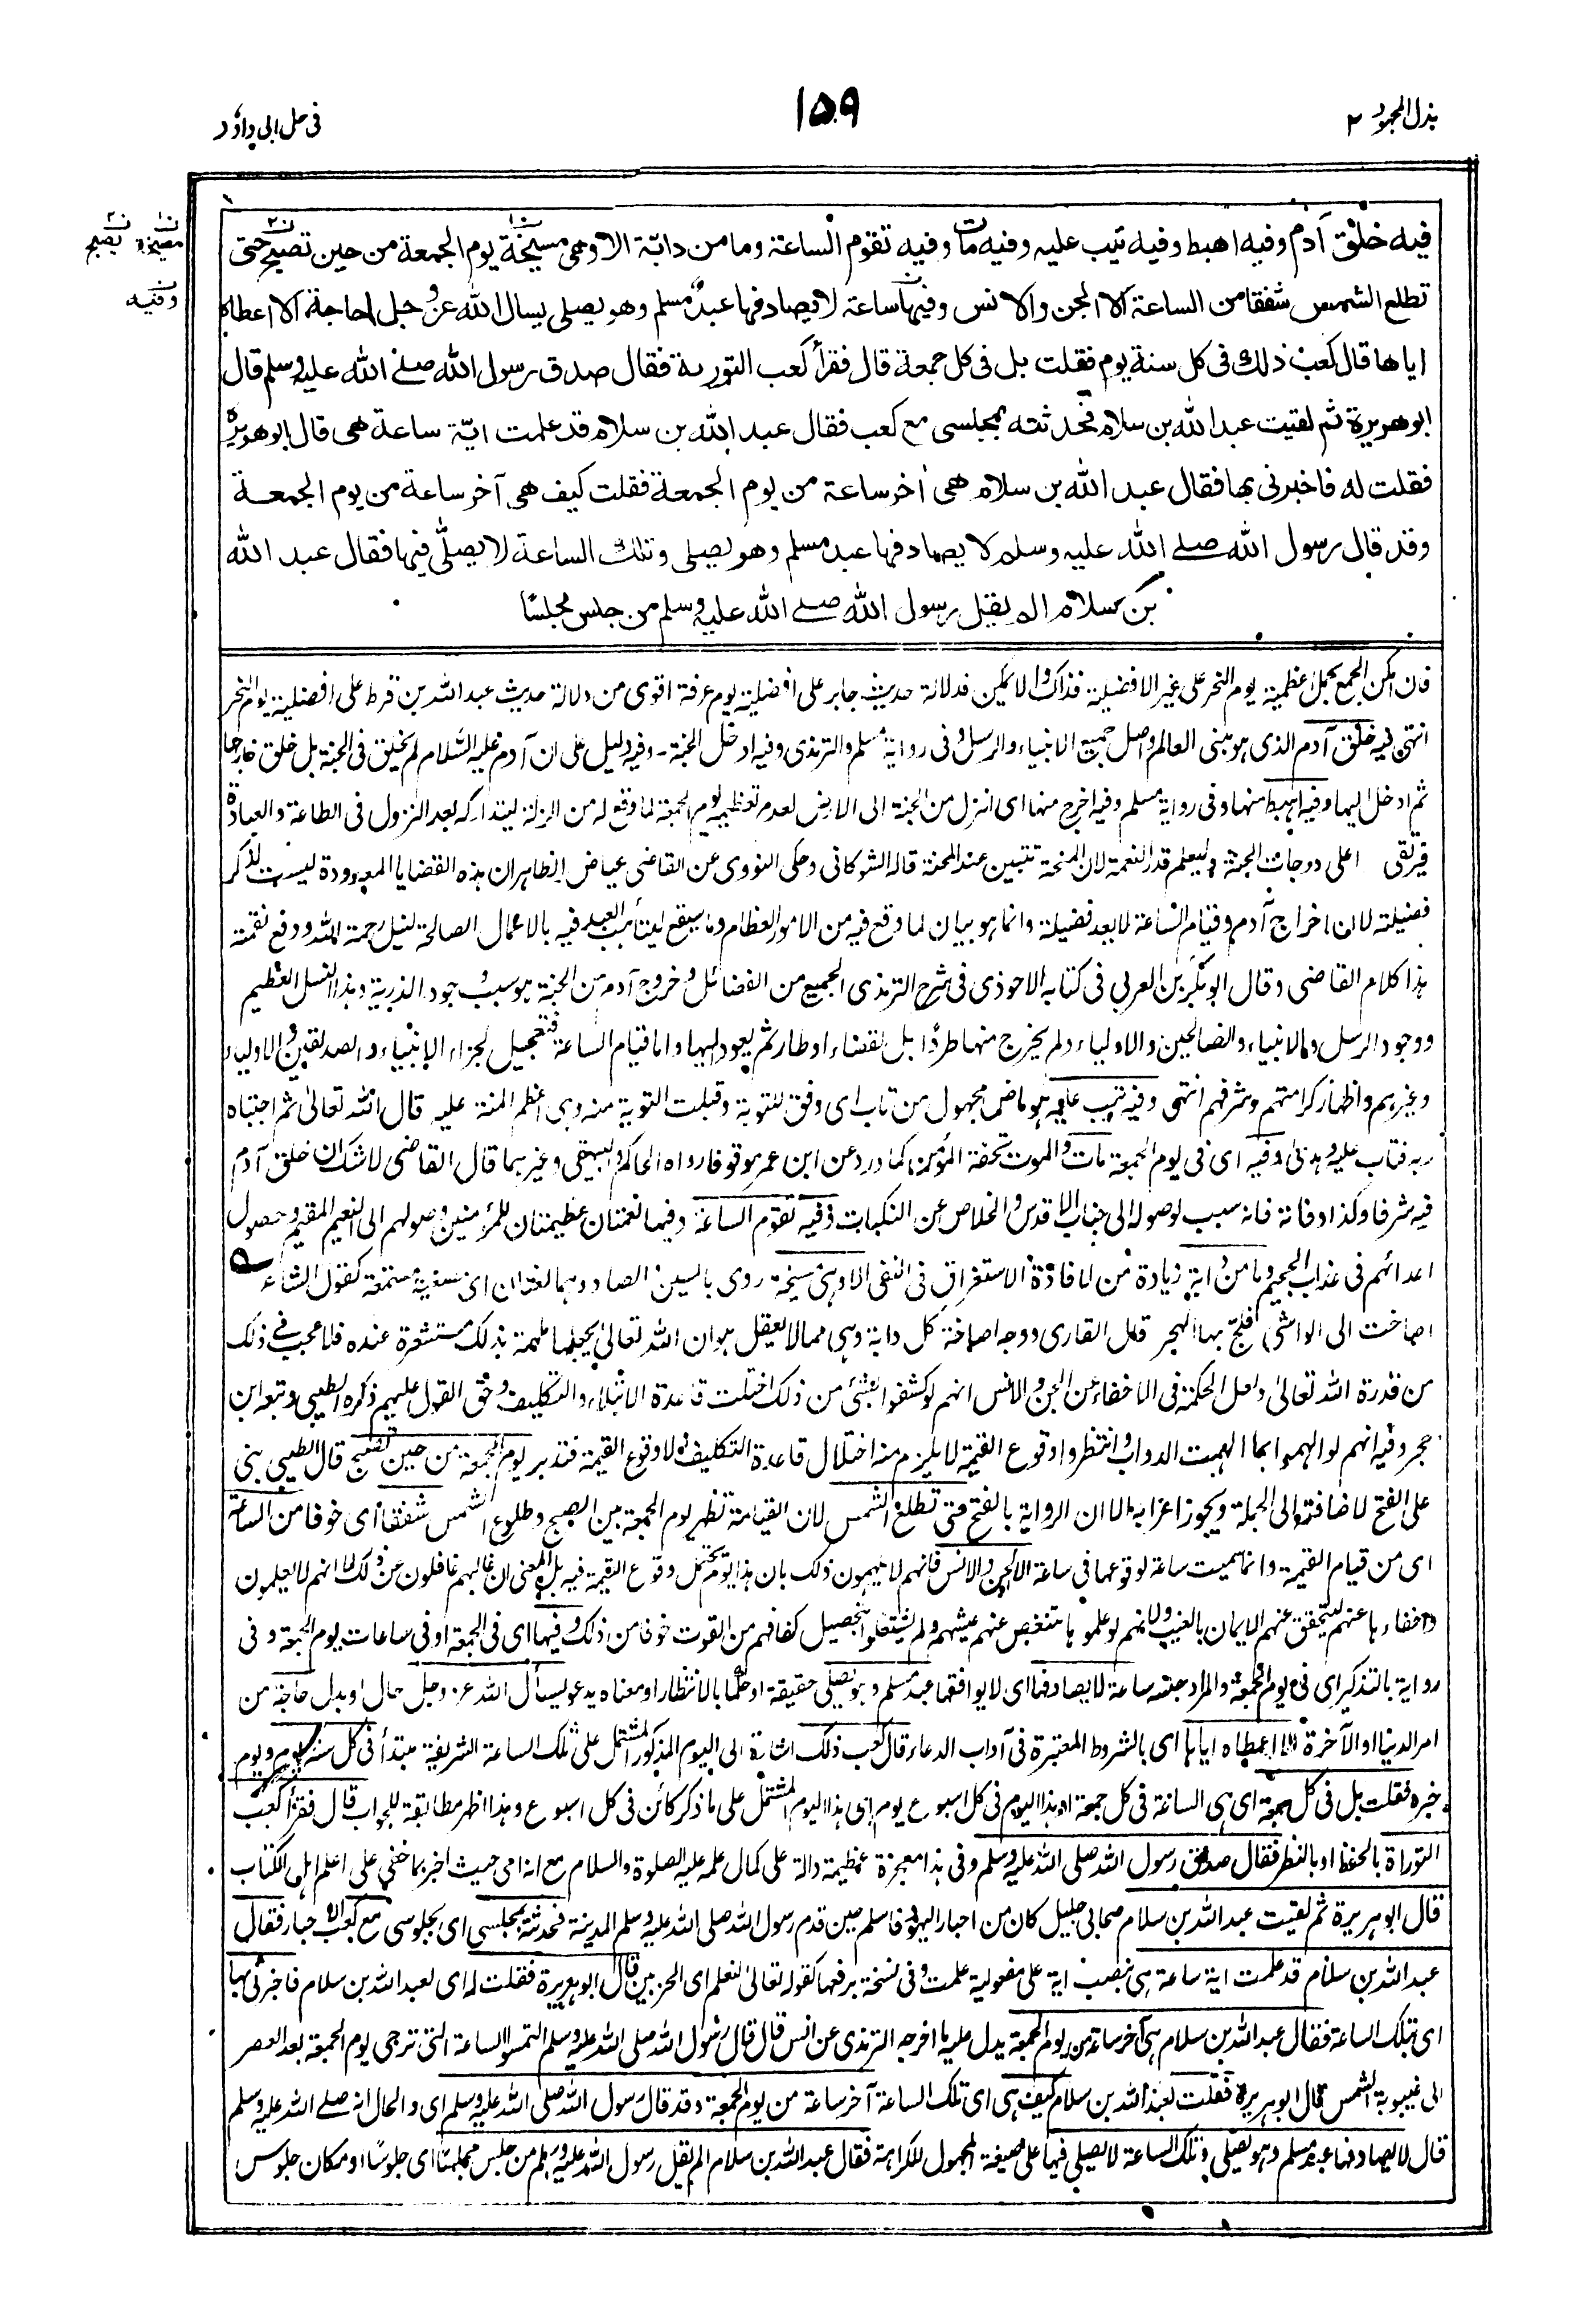 بذل المجهود ۲
۱۵۹
فى حل ابى داؤد
فيه خلق آدم وفيه اهبط وفيه تيب عليه وفيه مات وفيه تقوم الساعة وما من دابّة الا وهى مسيخة يوم الجمعة من حين تصبح حتى
تطلع الشمس شفقا من الساعة الا الجن والانس وفيها ساعة لا يصادفها عبدٌ مسلم وهو يصلى يسال الله عزّ وجل حاجة الا اعطاه
اياها قال كعب ذلك فى كل سنة يوم فقلت بل فى كل جمعة قال فقرأ كعب التورية فقال صدق رسول الله صلى الله عليه وسلم قال
ابوهريرة ثم لقيت عبد الله بن سلام فحدثته بمجلسى مع كعب فقال عبد الله بن سلام قد علمت ايّة ساعة هى قال ابوهريرة
فقلت له فاخبرنى بها فقال عبد الله بن سلام هى آخر ساعة من يوم الجمعة فقلت كيف هى آخر ساعة من يوم الجمعة
وقد قال رسول الله صلے الله عليه وسلم لا يصادفها عبد مسلم وهو يصلى وتلك الساعة لا يصلّٰى فيها فقال عبد الله
بن سلام الم يقل رسول الله صلے الله عليه وسلم من جلس مجلسًا
ن۱ مصيخة ن۲ يصبح
ن وفيه
فان امكن الجمع بحمل اعظمية يوم النحر على غير الافضلية فذاك والا يمكن فدلالة حديث جابر على افضلية يوم عرفة اقوى من دلالة حديث عبد الله بن قرط على افضلية يوم النحر
انتهى فيه خلق آدم الذى هو مبنى العالم واصل جميع الانبياء والرسل وفى رواية مسلم والترمذى وفيه ادخل الجنة - وفيه دليل على ان آدم عليه السّلام لم يخلق فى الجنة بل خلق خارجها
ثم ادخل اليها وفيه اهبط منها وفى رواية مسلم وفيه اخرج منها اى انزل من الجنة الى الارض لعدم تعظيمه يوم الجمعة لما وقع له من الزلة ليتداركه بعد النزول فى الطاعة والعبادة
فيرتقى اعلى درجات الجنة وليعلم قدر النعمة لان المنحة تتبين عند المحنة قاله الشوكانى وحكى النووى عن القاضى عياض الظاهر ان هذه القضايا المعدودة ليست لذكر
فضيلته لان اخراج آدم وقيام الساعة لا يعد فضيلة وانما هو بيان لما وقع فيه من الامور العظام وما سيقع ليتأهب العبد فيه بالاعمال الصالحة لنيل رحمة الله ودفع نقمته
هذا كلام القاضى وقال ابو بكر بن العربى فى كتابه الاحوذى فى شرح الترمذى الجميع من الفضائل وخروج آدم من الجنة هو سبب وجود الذرية وهذا النسل العظيم
ووجود الرسل والانبياء والصالحين والاولياء ولم يخرج منها طردًا بل لقضاء اوطار ثم يعود اليها واما قيام الساعة فتعجيل لجزاء الانبياء والصديقين والاولياء
وغيرهم واظهار كرامتهم وشرفهم انتهى وفيه تيب عليه هو ماض مجهول من تاب اى وفق للتوبة وقبلت التوبة منه وهى اعظم المنة عليه قال الله تعالىٰ ثم اجتباه
ربه فتاب عليه وهدىٰ وفيه اى فى يوم الجمعة مات والموت تحفة المؤمن كما ورد عن ابن عمر موقوفا رواه الحاكم والبيهقى وغيرهما قال القاضى لا شك ان خلق آدم
فيه شرفا وكذا وفاته فانه سبب لوصوله الى جناب الاقدس والخلاص عن النكبات وفيه تقوم الساعة وفيها نعمتان عظيمتان للمؤمنين وصولهم الى النعيم المقيم وحصول
اعدائهم فى عذاب الجحيم وما من دابة زيادة من لافادة الاستغراق فى النفى الا وهى مسيخة روى بالسين والصاد وهما لغتان اى مصغية مستمعة كقول الشاعر
اصاخت الى الواشى فلجّ بها الهجر قال القارى ووجه اصاخة كل دابة وهى مما لا يعقل هو ان الله تعالىٰ يجعلها ملهمة بذلك مستشعرة عنده فلا عجب فى ذلك
من قدرة الله تعالىٰ ولعل الحكمة فى الاخفاء عن الجن والانس انهم لو كشفوا بشئ من ذلك اختلت قاعدة الابتلاء والتكليف وحق القول عليهم ذكره الطيبى وتبعه ابن
حجر وفيه انهم لو الهموا بما الهمت الدواب وانتظروا وقوع القيمة لا يلزم منه اختلال قاعدة التكليف ولا وقوع القيمة فتدبر يوم الجمعة من حين تصبح قال الطيبى بنى
على الفتح لاضافته الى الجملة ويجوز اعرابه الا ان الرواية بالفتح حتى تطلع الشمس لان القيامة تظهر يوم الجمعة بين الصبح وطلوع الشمس شفقا اى خوفا من الساعة
اى من قيام القيمة وانما سميت ساعة لوقوعها فى ساعة الا الجن والانس فانهم لا يلهمون ذلك بان هذا يوم يحتمل وقوع القيمة فيه بل المعنى ان غالبهم غافلون عن ذلك لا انهم لا يعلمون
واخفاءها عنهم ليتحقق عنهم الايمان بالغيب ولانهم لو علموها تنغص عنهم عيشهم ولم يشتغلوا بتحصيل كفافهم من القوت خوفا من ذلك وفيها اى فى الجمعة او فى ساعات يوم الجمعة وفى
رواية بالتذكير اى فى يوم الجمعة والمراد جنسه ساعة لا يصادفها اى لا يوافقها عبد مسلم وهو يصلى حقيقة او حكما بالانتظار او معناه يدعو يسأل الله عز وجل حال او بدل حاجة من
امر الدنيا او الآخرة الا اعطاه اياها اى بالشروط المعتبرة فى آداب الدعاء قال كعب ذلك اشارة الى اليوم المذكور المشتمل على تلك الساعة الشريفة مبتدأ فى كل سنة يوم ويوم
خبره فقلت بل فى كل جمعة اى هى الساعة فى كل جمعة او هذا اليوم فى كل اسبوع يوم اى هذا اليوم المشتمل على ما ذكر كائن فى كل اسبوع وهذا اظهر مطابقة للجواب قال فقرأ كعب
التوراة بالحفظ او بالنظر فقال صدق رسول الله صلى الله عليه وسلم وفى هذا معجزة عظيمة دالة على كمال علمه عليه الصلوة والسلام مع انه امى حيث اخبر بما خفى على اعلم اهل الكتاب
قال ابو هريرة ثم لقيت عبد الله بن سلام صحابى جليل كان من احبار اليهود فاسلم حين قدم رسول الله صلى الله عليه وسلم المدينة فحدثته بمجلسى اى بجلوسى مع كعب الاحبار فقال
عبد الله بن سلام قد علمت اية ساعة هى بنصب اية على مفعولية علمت وفى نسخة برفعها كقوله تعالىٰ لنعلم اى الحزبين قال ابو هريرة فقلت له اى لعبد الله بن سلام فاخبرنى بها
اى بتلك الساعة فقال عبد الله بن سلام هى آخر ساعة من يوم الجمعة يدل عليه ما اخرجه الترمذى عن انس قال قال رسول الله صلى الله عليه وسلم التمسوا الساعة التى ترجى يوم الجمعة بعد العصر
الى غيبوبة الشمس قال ابو هريرة فقلت لعبد الله بن سلام كيف هى اى تلك الساعة آخر ساعة من يوم الجمعة وقد قال رسول الله صلى الله عليه وسلم اى والحال انه صلے الله عليه وسلم
قال لا يصادفها عبد مسلم وهو يصلى وتلك الساعة لا يصلى فيها على صيغة المجهول للكراهة فقال عبد الله بن سلام الم يقل رسول الله عليه وسلم من جلس مجلسًا اى جلوسًا او مكان جلوس